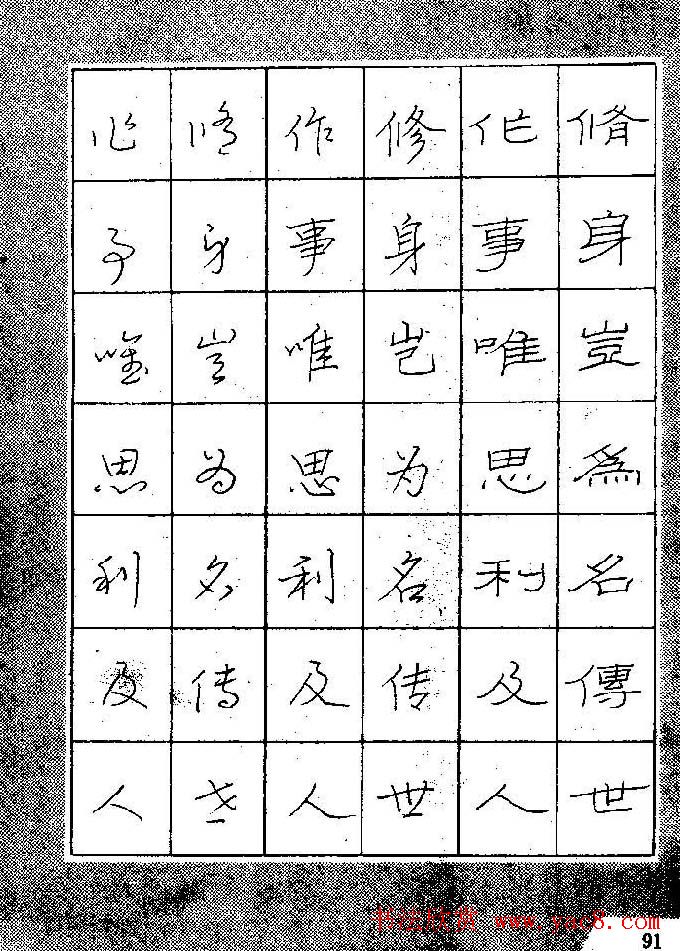 脩身豈爲名傳世
作事唯思利及人
修身岂为名传世
作事唯思利及人
修身岂为名传世
作事唯思利及人
书法欣赏 www.yac8.com
91